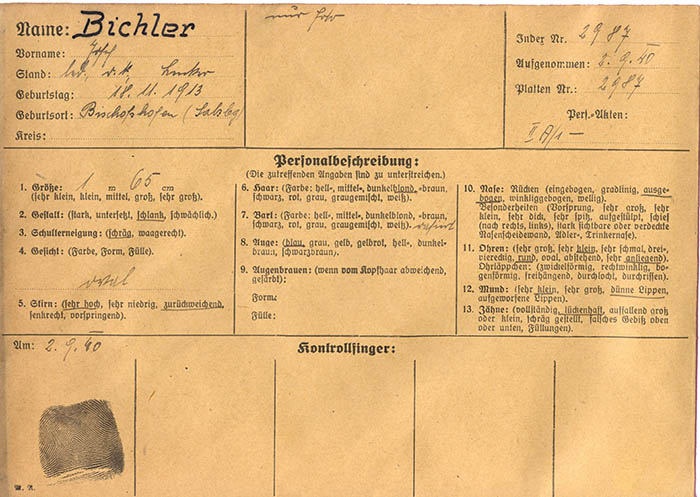 Name: Bichler
Vorname:
Stand: led.
Geburtstag: 18.11.1913
Geburtsort: Bischofshofen (Salzbg
Kreis:
nur Foto
Index Nr. 2987
Aufgenommen: 2.9.40
Platten Nr.: 2987
Pers.-Akten:
II A/1 —
Personalbeschreibung:
(Die zutreffenden Angaben sind zu unterstreichen.)
1. Größe: 1 m 65 cm
(sehr klein, klein, mittel, groß, sehr groß).
2. Gestalt: (stark, untersetzt, schlank, schwächlich).
3. Schulterneigung: (schräg, waagerecht).
4. Gesicht: (Farbe, Form, Fülle).
oval
5. Stirn: (sehr hoch, sehr niedrig, zurückweichend,
senkrecht, vorspringend).
6. Haar: (Farbe: hell-, mittel-, dunkelblond, -braun,
schwarz, rot, grau, graugemischt, weiß).
7. Bart: (Farbe: hell-, mittel-, dunkelblond, -braun,
schwarz, rot, grau, graugemischt, weiß). rasiert
8. Auge: (blau, grau, gelb, gelbrot, hell-, dunkel-
braun, schwarzbraun).
9. Augenbrauen: (wenn vom Kopfhaar abweichend,
gefärbt):
Form:
Fülle:
10. Nase: Rücken (eingebogen, gradlinig, ausge-
bogen, winkliggebogen, wellig).
Besonderheiten (Vorsprung, sehr groß, sehr
klein, sehr dick, sehr spitz, aufgestülpt, schief
(nach rechts, links), stark sichtbare oder verdeckte
Nasenscheidewand, Adler-, Trinkernase).
11. Ohren: (sehr groß, sehr klein, sehr schmal, drei-,
viereckig, rund, oval, abstehend, sehr anliegend).
Ohrläppchen: (zwickelförmig, rechtwinklig, bo-
genförmig, freihängend, durchlocht, durchrissen).
12. Mund: (sehr klein, sehr groß, dünne Lippen,
aufgeworfene Lippen).
13. Zähne: (vollständig, lückenhaft, auffallend groß
oder klein, schräg gestellt, falsches Gebiß oben
oder unten, Füllungen).
Am: 2.9.40
Kontrollfinger: